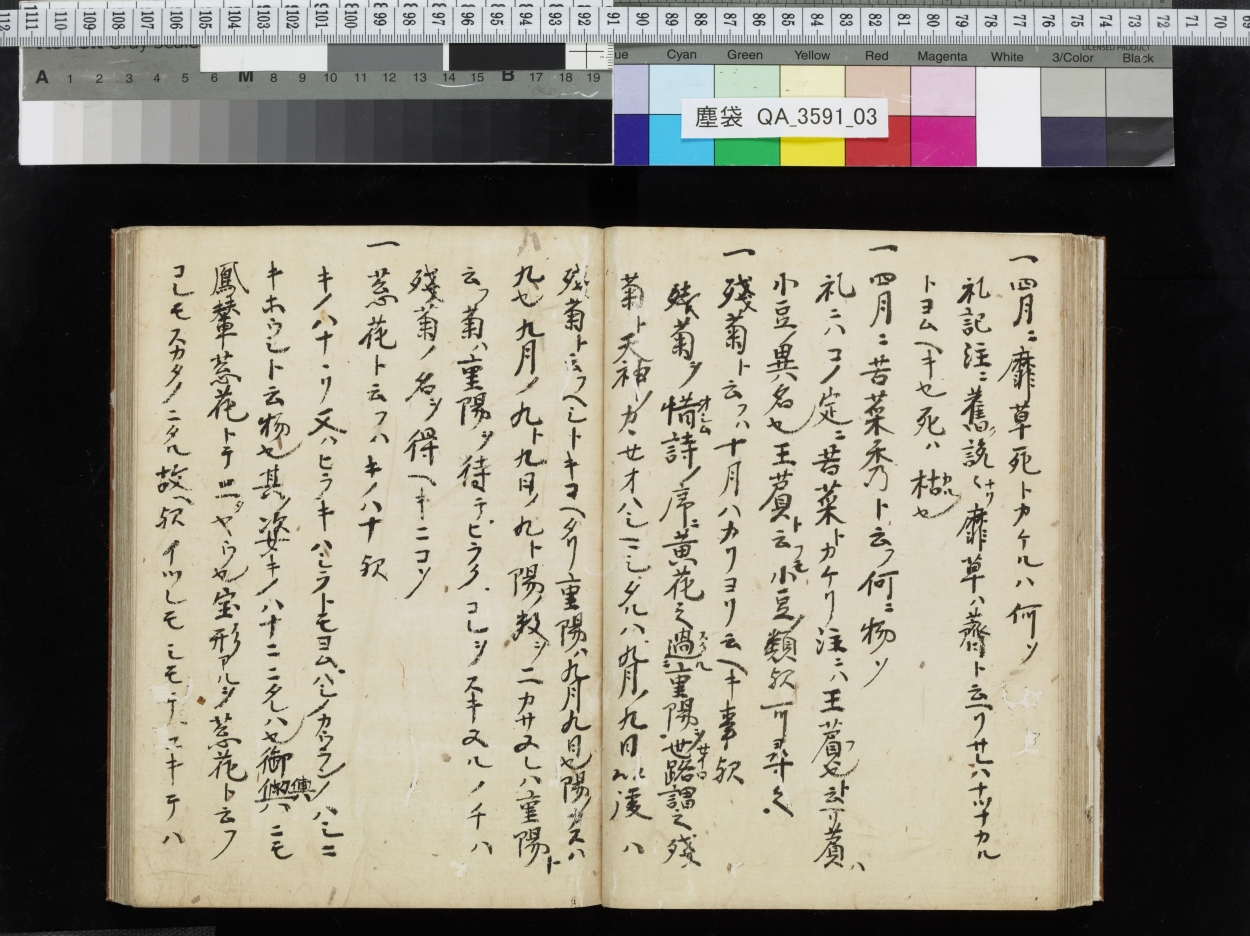 112 111 110 109 108 107 106 105 104 103 102 101 100 99 98 97 96 95 94 93 92 91 90 89 88 87 86 85 84 83 82 81 80 79 78 77 76 75 74 73 72 71 70 69
A 1 2 3 4 5 6 M 8 9 10 11 12 13 14 15 B 17 18 19
Cyan Green Yellow Red Magenta White 3/Color Black
LICENSED PRODUCT
塵袋 QA_3591_03
一四月ニ靡草死トカケルハ何ソ
礼記注ニ舊説ニ靡草ハ薺ト云ヘリ
トヨムヘキ也死ハ枯也
一四月ニ苦菜秀ト云フ何ニ物ソ
礼ニハコノ定ニ苦菜トカケリ注ニハ王萯也ト云リ萯ハ
小豆ノ異名也王萯ト云フモ小豆ノ類歟可尋之
一殘菊ト云フハ十月ハカリヨリ云ヘキ事歟
殘菊ヲ惜詩ノ序ニ黄花之過重陽世路謂之殘
菊ト天神ノカヽせオハシマシタルハ九月ノ九日以後ハ
殘菊ト云フヘシトキコヘタリ重陽ハ九月九日也陽カスハ
九也九月ノ九ト九日ノ九ト陽ノ数ヲ二カサヌレハ重陽ト
云フ菊ハ重陽ヲ待テヒラク コレヲスキヌルノチハ
殘菊ノ名ヲ得ヘキニコソ
一葱花ト云フハキノハナ歟
キノハナナリ又ハヒラキハシラトモヨムハシノカウランノハシニ
キホウシト云物也其ノ姿キノハナニニタレハ也御輿ニモ
鳳輦葱花トテ二ノヤウ也宝形アルヲ葱花ト云フ
コレモスカタノニタル故ヘ歟イツレモミモテニキテハ